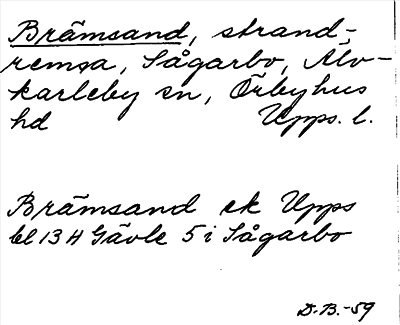 Brämsand, strand-
remsa, Sågarbo, Älv-
karleby sn, Örbyhus
hd Upps. l.
Brämsand ek Upps
bl 13 H Gävle 5 i Sågarbo
D.B.-59